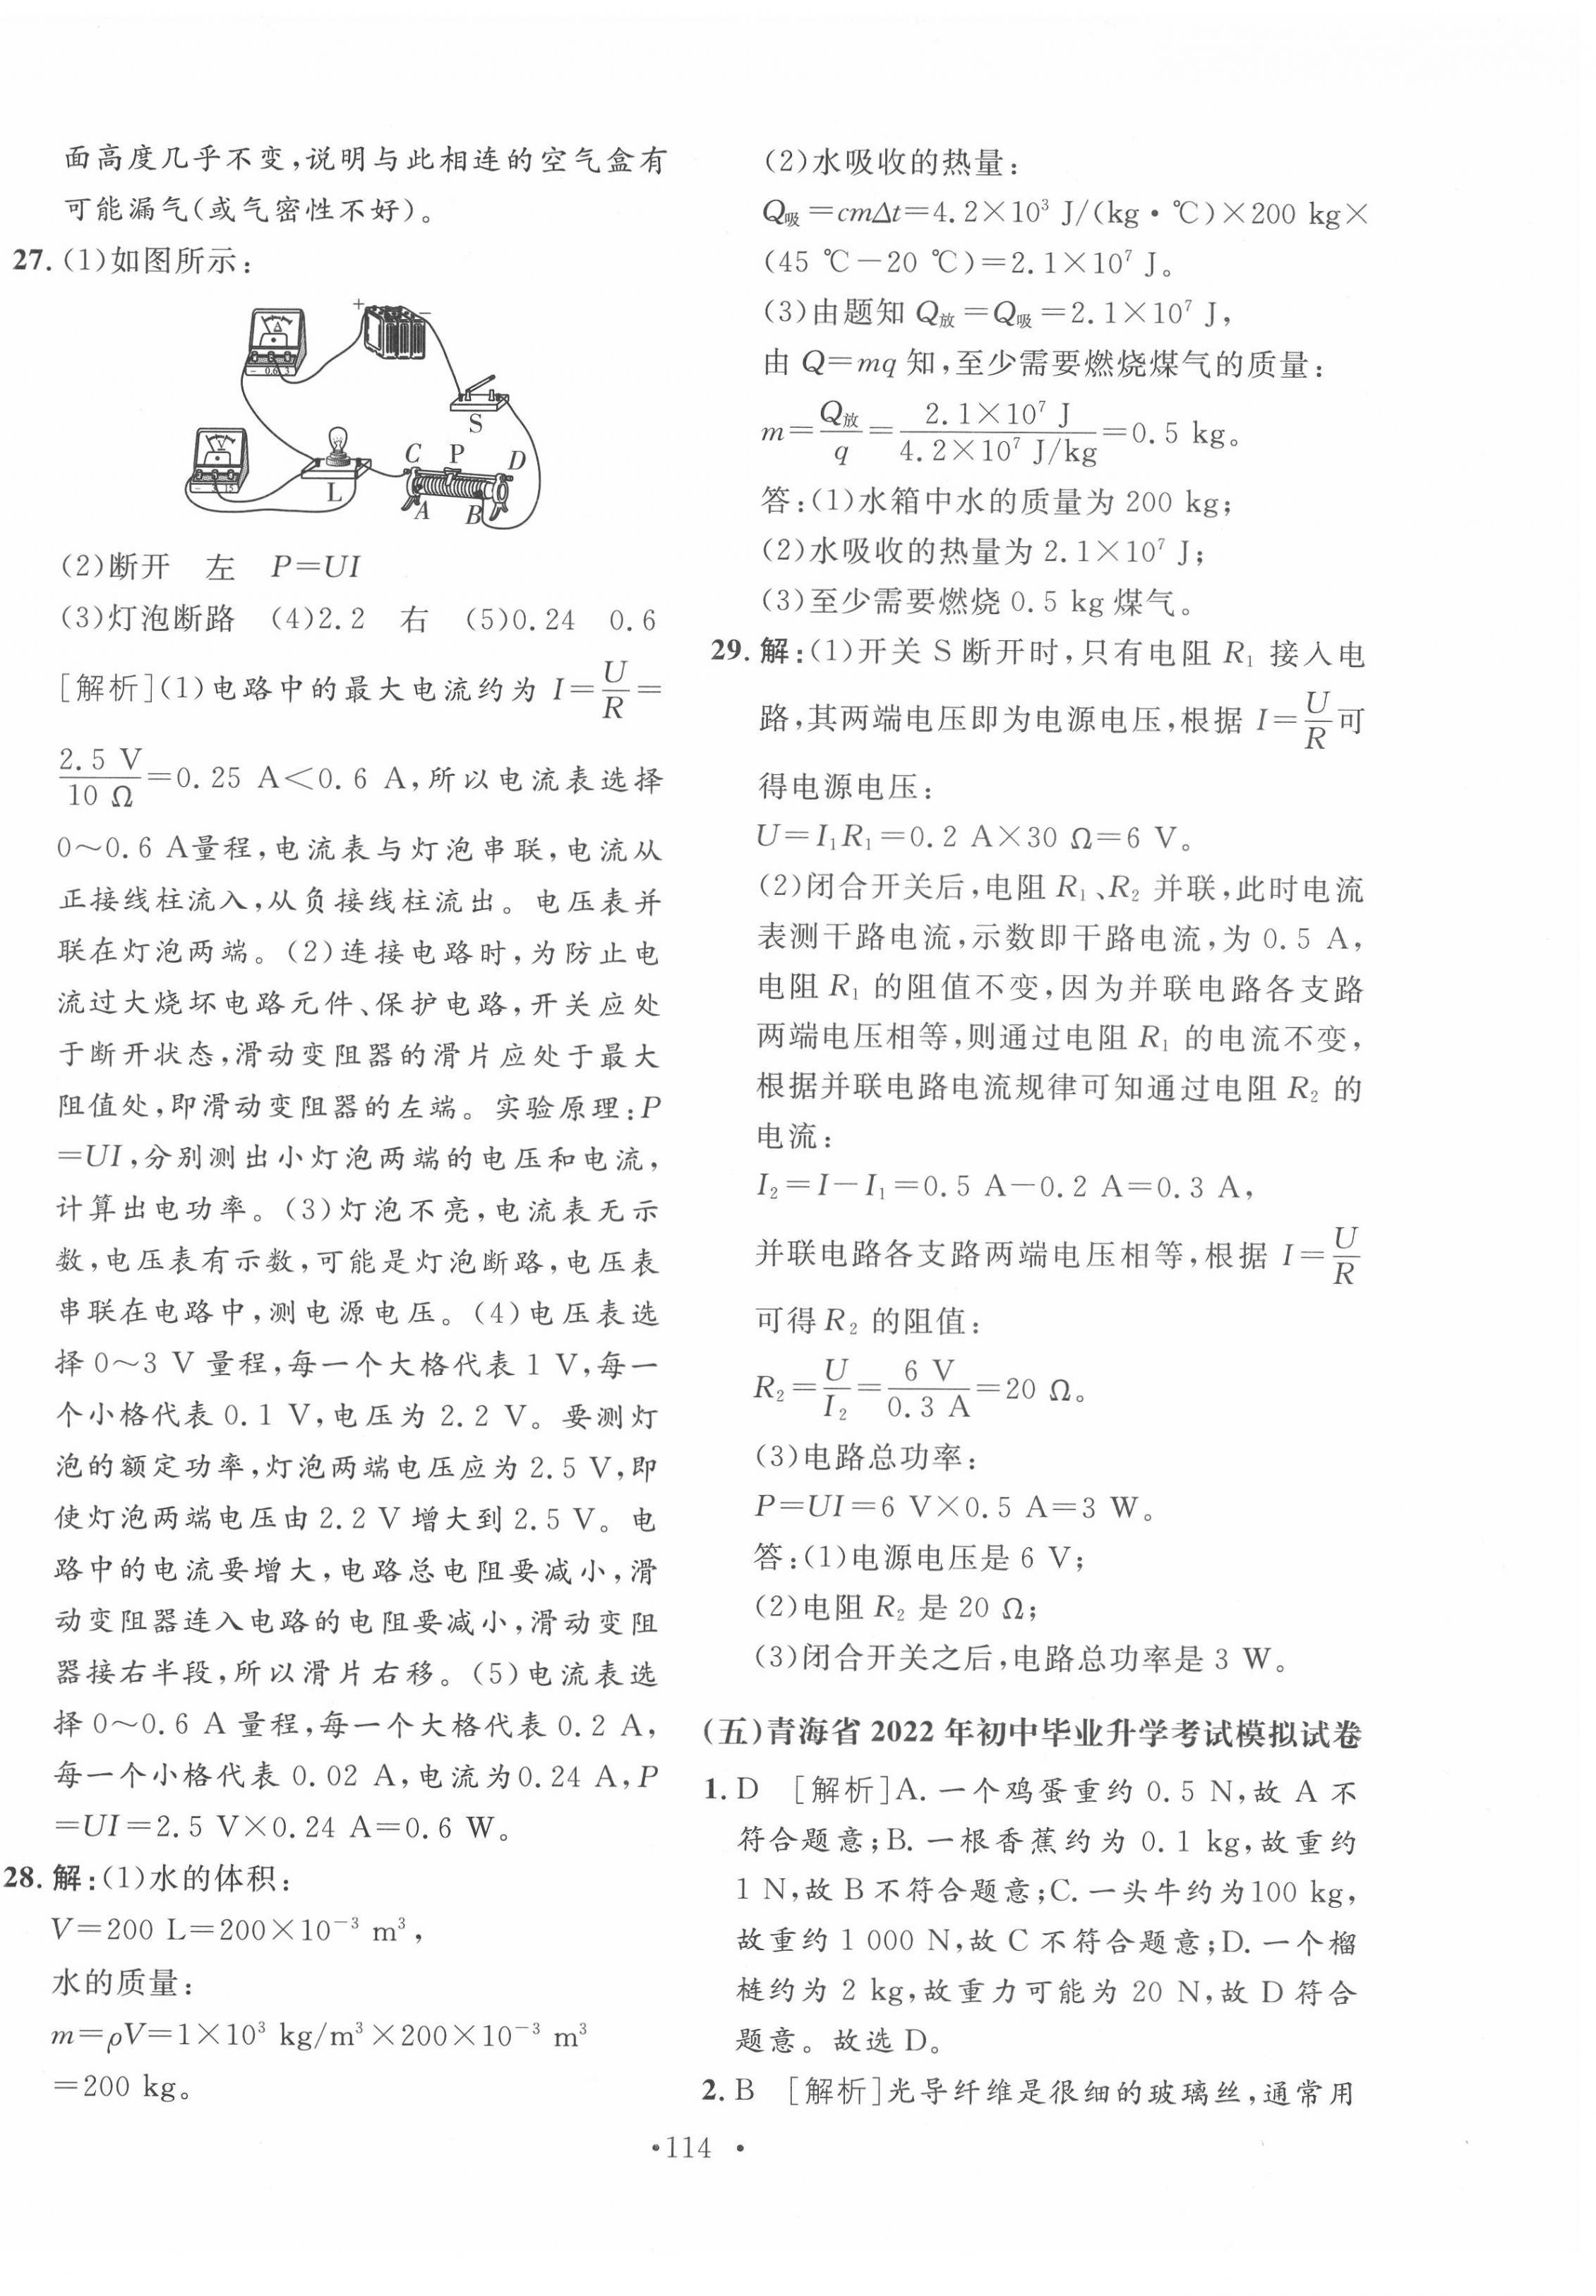 面高度几乎不变,说明与此相连的空气盒有
可能漏气(或气密性不好)。
27. (1)如图所示:
+
−
A
− 0.6 3
S
V
− 15
L
C P D
A B
(2)断开 左 P=UI
(3)灯泡断路 (4)2.2 右 (5)0.24 0.6
[解析](1)电路中的最大电流约为 I=U/R=
2.5 V/10 Ω=0.25 A<0.6 A,所以电流表选择
0~0.6 A量程,电流表与灯泡串联,电流从
正接线柱流入,从负接线柱流出。电压表并
联在灯泡两端。(2)连接电路时,为防止电
流过大烧坏电路元件、保护电路,开关应处
于断开状态,滑动变阻器的滑片应处于最大
阻值处,即滑动变阻器的左端。实验原理:P
=UI,分别测出小灯泡两端的电压和电流,
计算出电功率。(3)灯泡不亮,电流表无示
数,电压表有示数,可能是灯泡断路,电压表
串联在电路中,测电源电压。(4)电压表选
择 0~3 V 量程,每一个大格代表 1 V,每一
个小格代表 0.1 V,电压为 2.2 V。要测灯
泡的额定功率,灯泡两端电压应为 2.5 V,即
使灯泡两端电压由 2.2 V 增大到 2.5 V。电
路中的电流要增大,电路总电阻要减小,滑
动变阻器连入电路的电阻要减小,滑动变阻
器接右半段,所以滑片右移。(5)电流表选
择 0~0.6 A 量程,每一个大格代表 0.2 A,
每一个小格代表 0.02 A,电流为0.24 A,P
=UI=2.5 V×0.24 A=0.6 W。
28. 解:(1)水的体积:
V=200 L=200×10⁻³ m³,
水的质量:
m=ρV=1×10³ kg/m³×200×10⁻³ m³
=200 kg。
(2)水吸收的热量:
Q吸=cmΔt=4.2×10³ J/(kg·℃)×200 kg×
(45 ℃−20 ℃)=2.1×10⁷ J。
(3)由题知 Q放=Q吸=2.1×10⁷ J,
由 Q=mq 知,至少需要燃烧煤气的质量:
m=Q放/q=2.1×10⁷ J/4.2×10⁷ J/kg=0.5 kg。
答:(1)水箱中水的质量为 200 kg;
(2)水吸收的热量为 2.1×10⁷ J;
(3)至少需要燃烧 0.5 kg 煤气。
29. 解:(1)开关 S 断开时,只有电阻 R₁ 接入电
路,其两端电压即为电源电压,根据 I=U/R可
得电源电压:
U=I₁R₁=0.2 A×30 Ω=6 V。
(2)闭合开关后,电阻 R₁、R₂ 并联,此时电流
表测干路电流,示数即干路电流,为 0.5 A,
电阻 R₁ 的阻值不变,因为并联电路各支路
两端电压相等,则通过电阻 R₁ 的电流不变,
根据并联电路电流规律可知通过电阻 R₂ 的
电流:
I₂=I−I₁=0.5 A−0.2 A=0.3 A,
并联电路各支路两端电压相等,根据 I=U/R
可得 R₂ 的阻值:
R₂=U/I₂=6 V/0.3 A=20 Ω。
(3)电路总功率:
P=UI=6 V×0.5 A=3 W。
答:(1)电源电压是 6 V;
(2)电阻 R₂ 是 20 Ω;
(3)闭合开关之后,电路总功率是 3 W。
(五)青海省 2022 年初中毕业升学考试模拟试卷
1. D [解析]A. 一个鸡蛋重约 0.5 N,故 A 不
符合题意;B. 一根香蕉约为 0.1 kg,故重约
1 N,故 B 不符合题意;C. 一头牛约为100 kg,
故重约 1 000 N,故 C 不符合题意;D. 一个榴
梿约为 2 kg,故重力可能为 20 N,故 D 符合
题意。故选 D。
2. B [解析]光导纤维是很细的玻璃丝,通常用
·114·